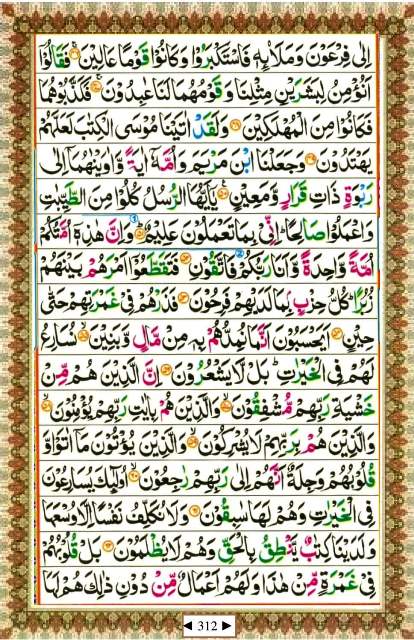 اِلٰى فِرْعَوْنَ وَمَلَا۟ئِهٖ فَاسْتَكْبَرُوْا وَكَانُوْا قَوْمًا عَالِيْنَ ۝ فَقَالُوْٓا
اَنُؤْمِنُ لِبَشَرَيْنِ مِثْلِنَا وَقَوْمُهُمَا لَنَا عٰبِدُوْنَ ۝ فَكَذَّبُوْهُمَا
فَكَانُوْا مِنَ الْمُهْلَكِيْنَ ۝ وَلَقَدْ اٰتَيْنَا مُوْسَى الْكِتٰبَ لَعَلَّهُمْ
يَهْتَدُوْنَ ۝ وَجَعَلْنَا ابْنَ مَرْيَمَ وَاُمَّهٗٓ اٰيَةً وَّاٰوَيْنٰهُمَآ اِلٰى
رَبْوَةٍ ذَاتِ قَرَارٍ وَّمَعِيْنٍ ۝ يٰٓاَيُّهَا الرُّسُلُ كُلُوْا مِنَ الطَّيِّبٰتِ
وَاعْمَلُوْا صَالِحًا ؕ اِنِّيْ بِمَا تَعْمَلُوْنَ عَلِيْمٌ ۝ وَاِنَّ هٰذِهٖٓ اُمَّتُكُمْ
اُمَّةً وَّاحِدَةً وَّاَنَا رَبُّكُمْ فَاتَّقُوْنِ ۝ فَتَقَطَّعُوْٓا اَمْرَهُمْ بَيْنَهُمْ
زُبُرًا ؕ كُلُّ حِزْبٍۭ بِمَا لَدَيْهِمْ فَرِحُوْنَ ۝ فَذَرْهُمْ فِيْ غَمْرَتِهِمْ حَتّٰى
حِيْنٍ ۝ اَيَحْسَبُوْنَ اَنَّمَا نُمِدُّهُمْ بِهٖ مِنْ مَّالٍ وَّبَنِيْنَ ۝ نُسَارِعُ
لَهُمْ فِي الْخَيْرٰتِ ؕ بَلْ لَّا يَشْعُرُوْنَ ۝ اِنَّ الَّذِيْنَ هُمْ مِّنْ
خَشْيَةِ رَبِّهِمْ مُّشْفِقُوْنَ ۝ وَالَّذِيْنَ هُمْ بِاٰيٰتِ رَبِّهِمْ يُؤْمِنُوْنَ ۝
وَالَّذِيْنَ هُمْ بِرَبِّهِمْ لَا يُشْرِكُوْنَ ۝ وَالَّذِيْنَ يُؤْتُوْنَ مَآ اٰتَوْا وَّ
قُلُوْبُهُمْ وَجِلَةٌ اَنَّهُمْ اِلٰى رَبِّهِمْ رٰجِعُوْنَ ۝ اُولٰٓئِكَ يُسَارِعُوْنَ
فِي الْخَيْرٰتِ وَهُمْ لَهَا سٰبِقُوْنَ ۝ وَلَا نُكَلِّفُ نَفْسًا اِلَّا وُسْعَهَا
وَلَدَيْنَا كِتٰبٌ يَّنْطِقُ بِالْحَقِّ وَهُمْ لَا يُظْلَمُوْنَ ۝ بَلْ قُلُوْبُهُمْ
فِيْ غَمْرَةٍ مِّنْ هٰذَا وَلَهُمْ اَعْمَالٌ مِّنْ دُوْنِ ذٰلِكَ هُمْ لَهَا
312